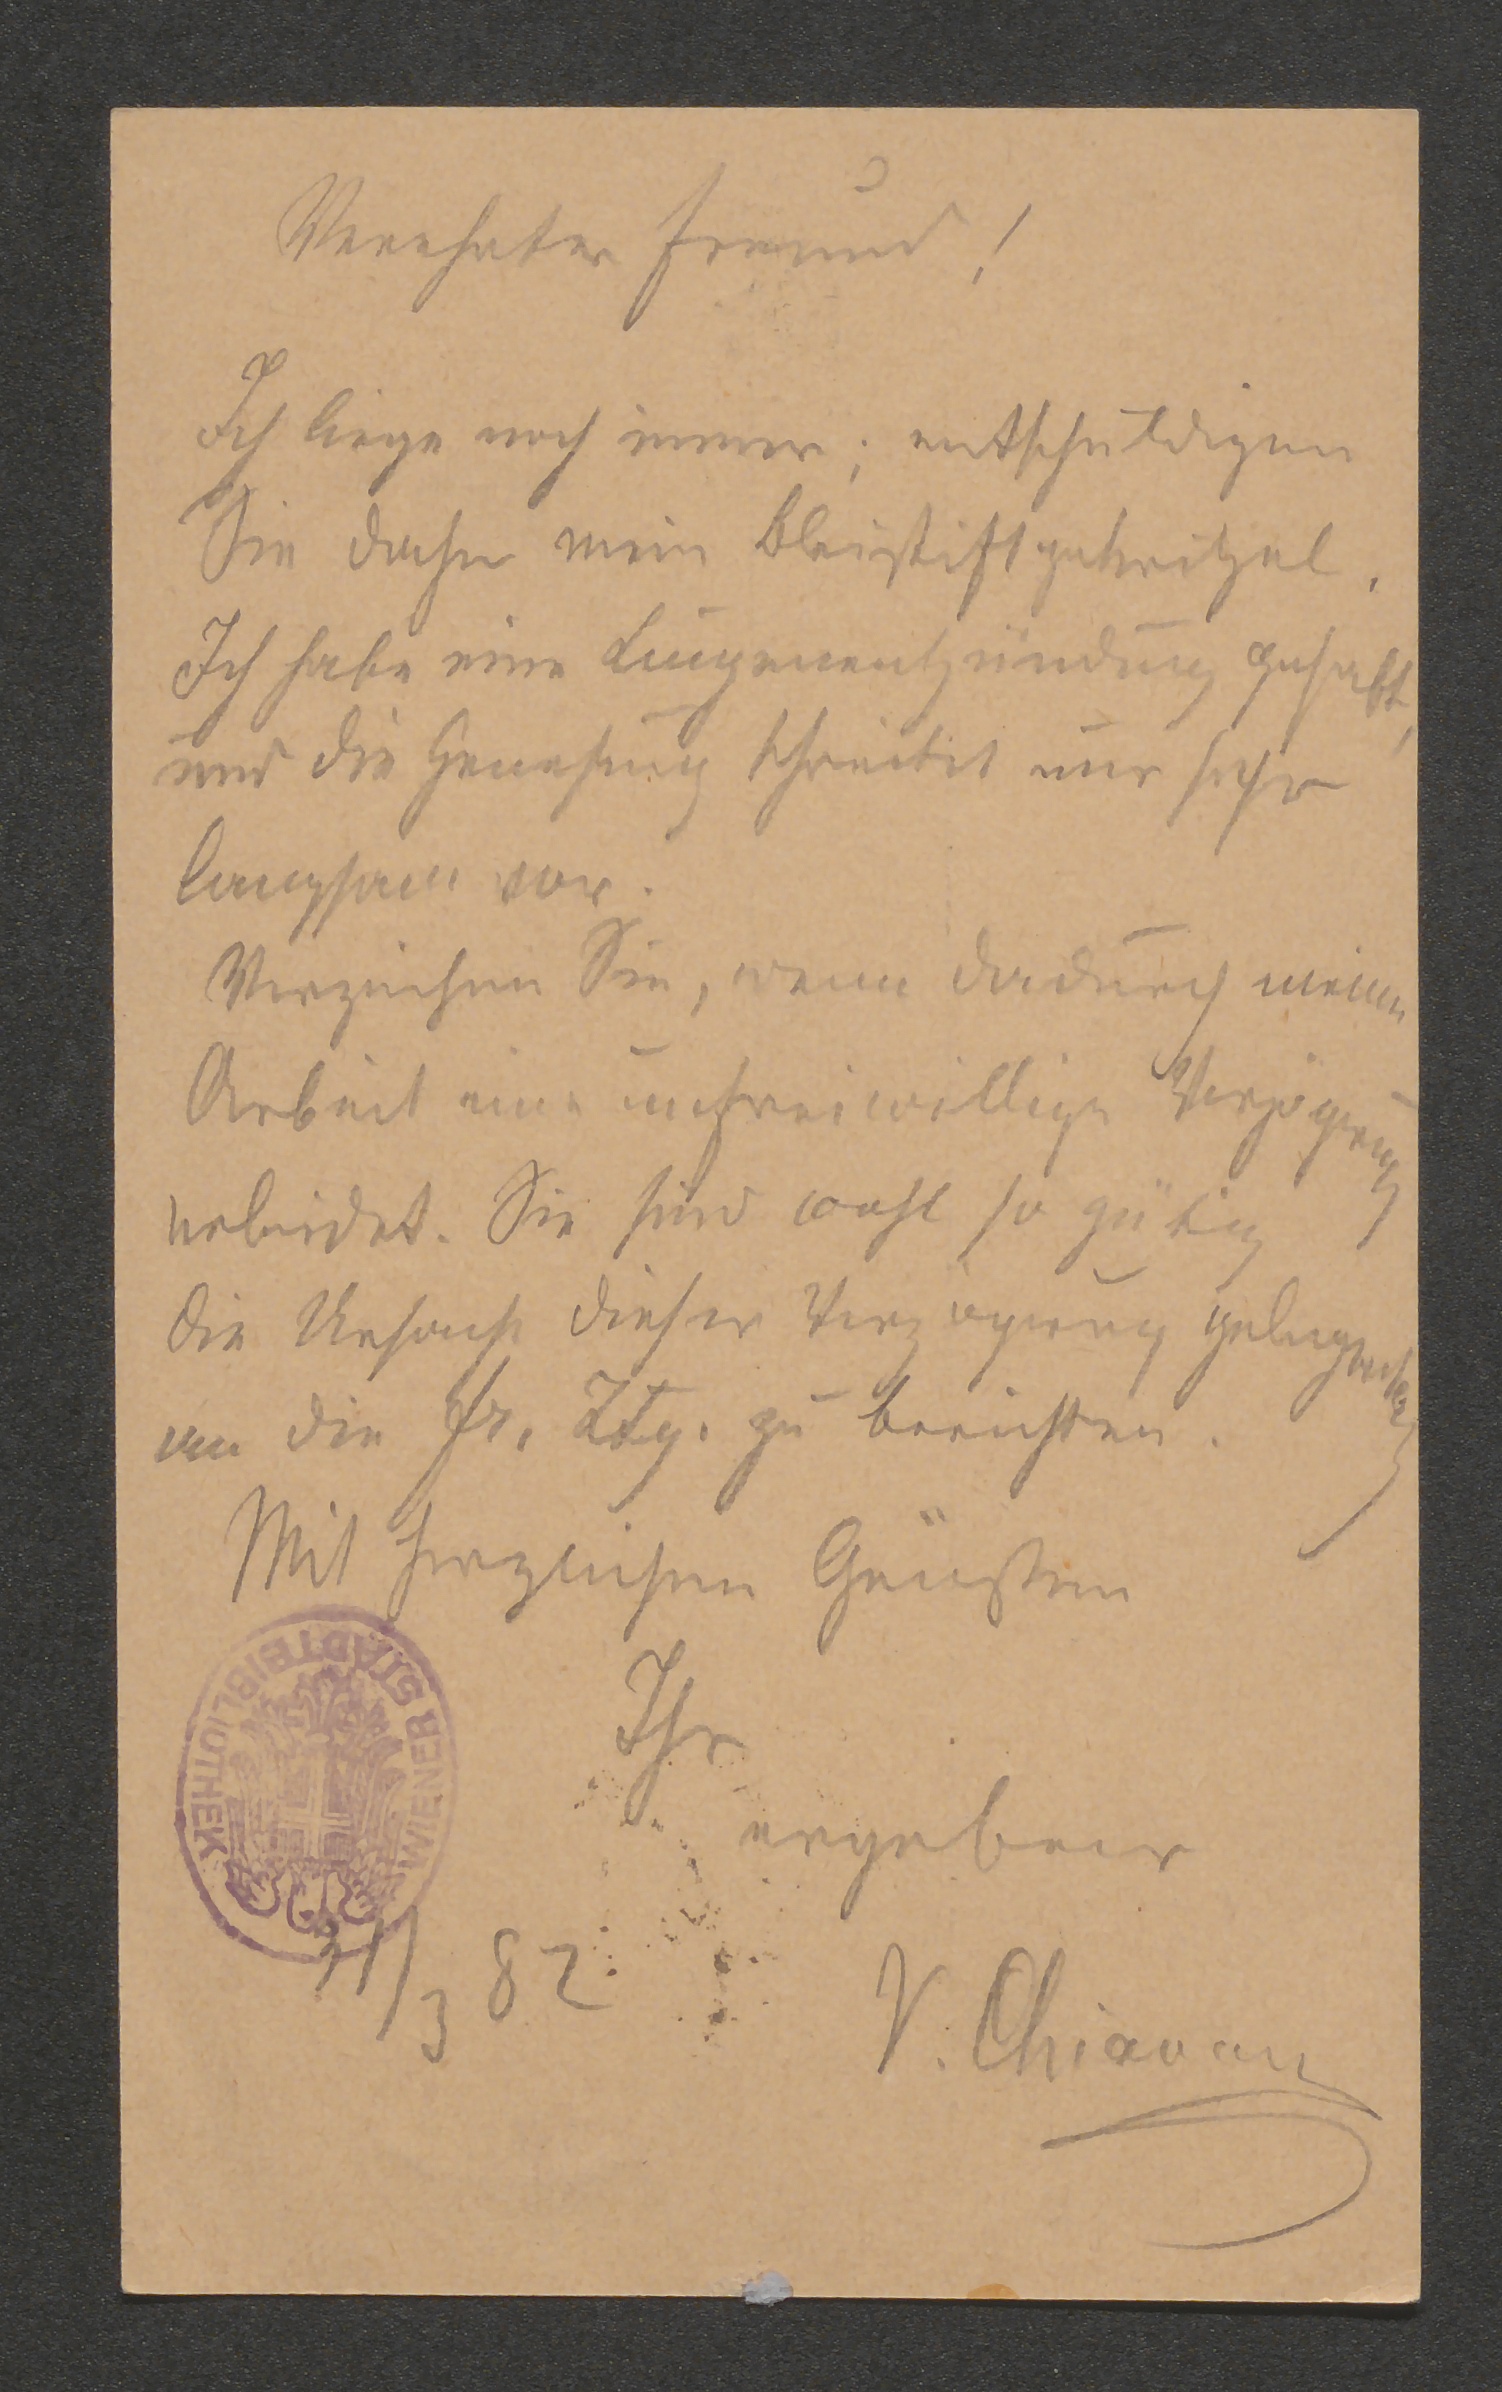 Verehrter Freund!
Ich liege noch immer; entschuldigen
Sie daher mein Bleistiftgekritzel.
Ich habe eine Lungenentzündung gehabt,
und die Genesung schreitet nur sehr
langsam vor.
Verzeihen Sie, wenn dadurch meine
Arbeit eine unfreiwillige Verzögerung
erleidet. Sie sind wohl so gütig
die Ursache dieser Verzögerung gelegentlich
an die Fr. Ztg. zu berichten.
Mit herzlichen Grüßen
Ihr
ergebener
WIENER STADTBIBLIOTHEK
/3 82
V. Chiavacci